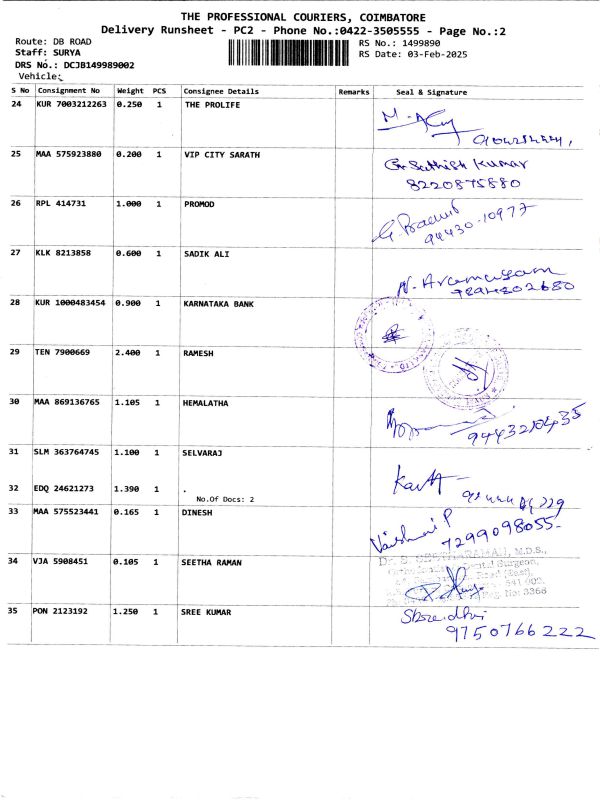 THE PROFESSIONAL COURIERS, COIMBATORE
Delivery Runsheet - PC2 - Phone No.:0422-3505555 - Page No.:2
Route: DB ROAD
RS No.: 1499890
Staff: SURYA
RS Date: 03-Feb-2025
DRS No.: DCJB149989002
Vehicle:
S No Consignment No Weight PCS Consignee Details Remarks Seal & Signature
24 KUR 7003212263 0.250 1 THE PROLIFE
25 MAA 575923880 0.200 1 VIP CITY SARATH Sathish Kumar
8220875880
26 RPL 414731 1.000 1 PROMOD
94430-10977
27 KLK 8213858 0.600 1 SADIK ALI
28 KUR 1000483454 0.900 1 KARNATAKA BANK
29 TEN 7900669 2.400 1 RAMESH
30 MAA 869136765 1.105 1 HEMALATHA
9443210435
31 SLM 363764745 1.100 1 SELVARAJ
32 EDQ 24621273 1.390 1 .
No.Of Docs: 2
33 MAA 575523441 0.165 1 DINESH Vaishnavi P
7299098055-
34 VJA 5908451 0.105 1 SEETHA RAMAN M.D.S.,
Dental Surgeon,
Road (East),
641 002.
No: 3366
35 PON 2123192 1.250 1 SREE KUMAR
9750766222